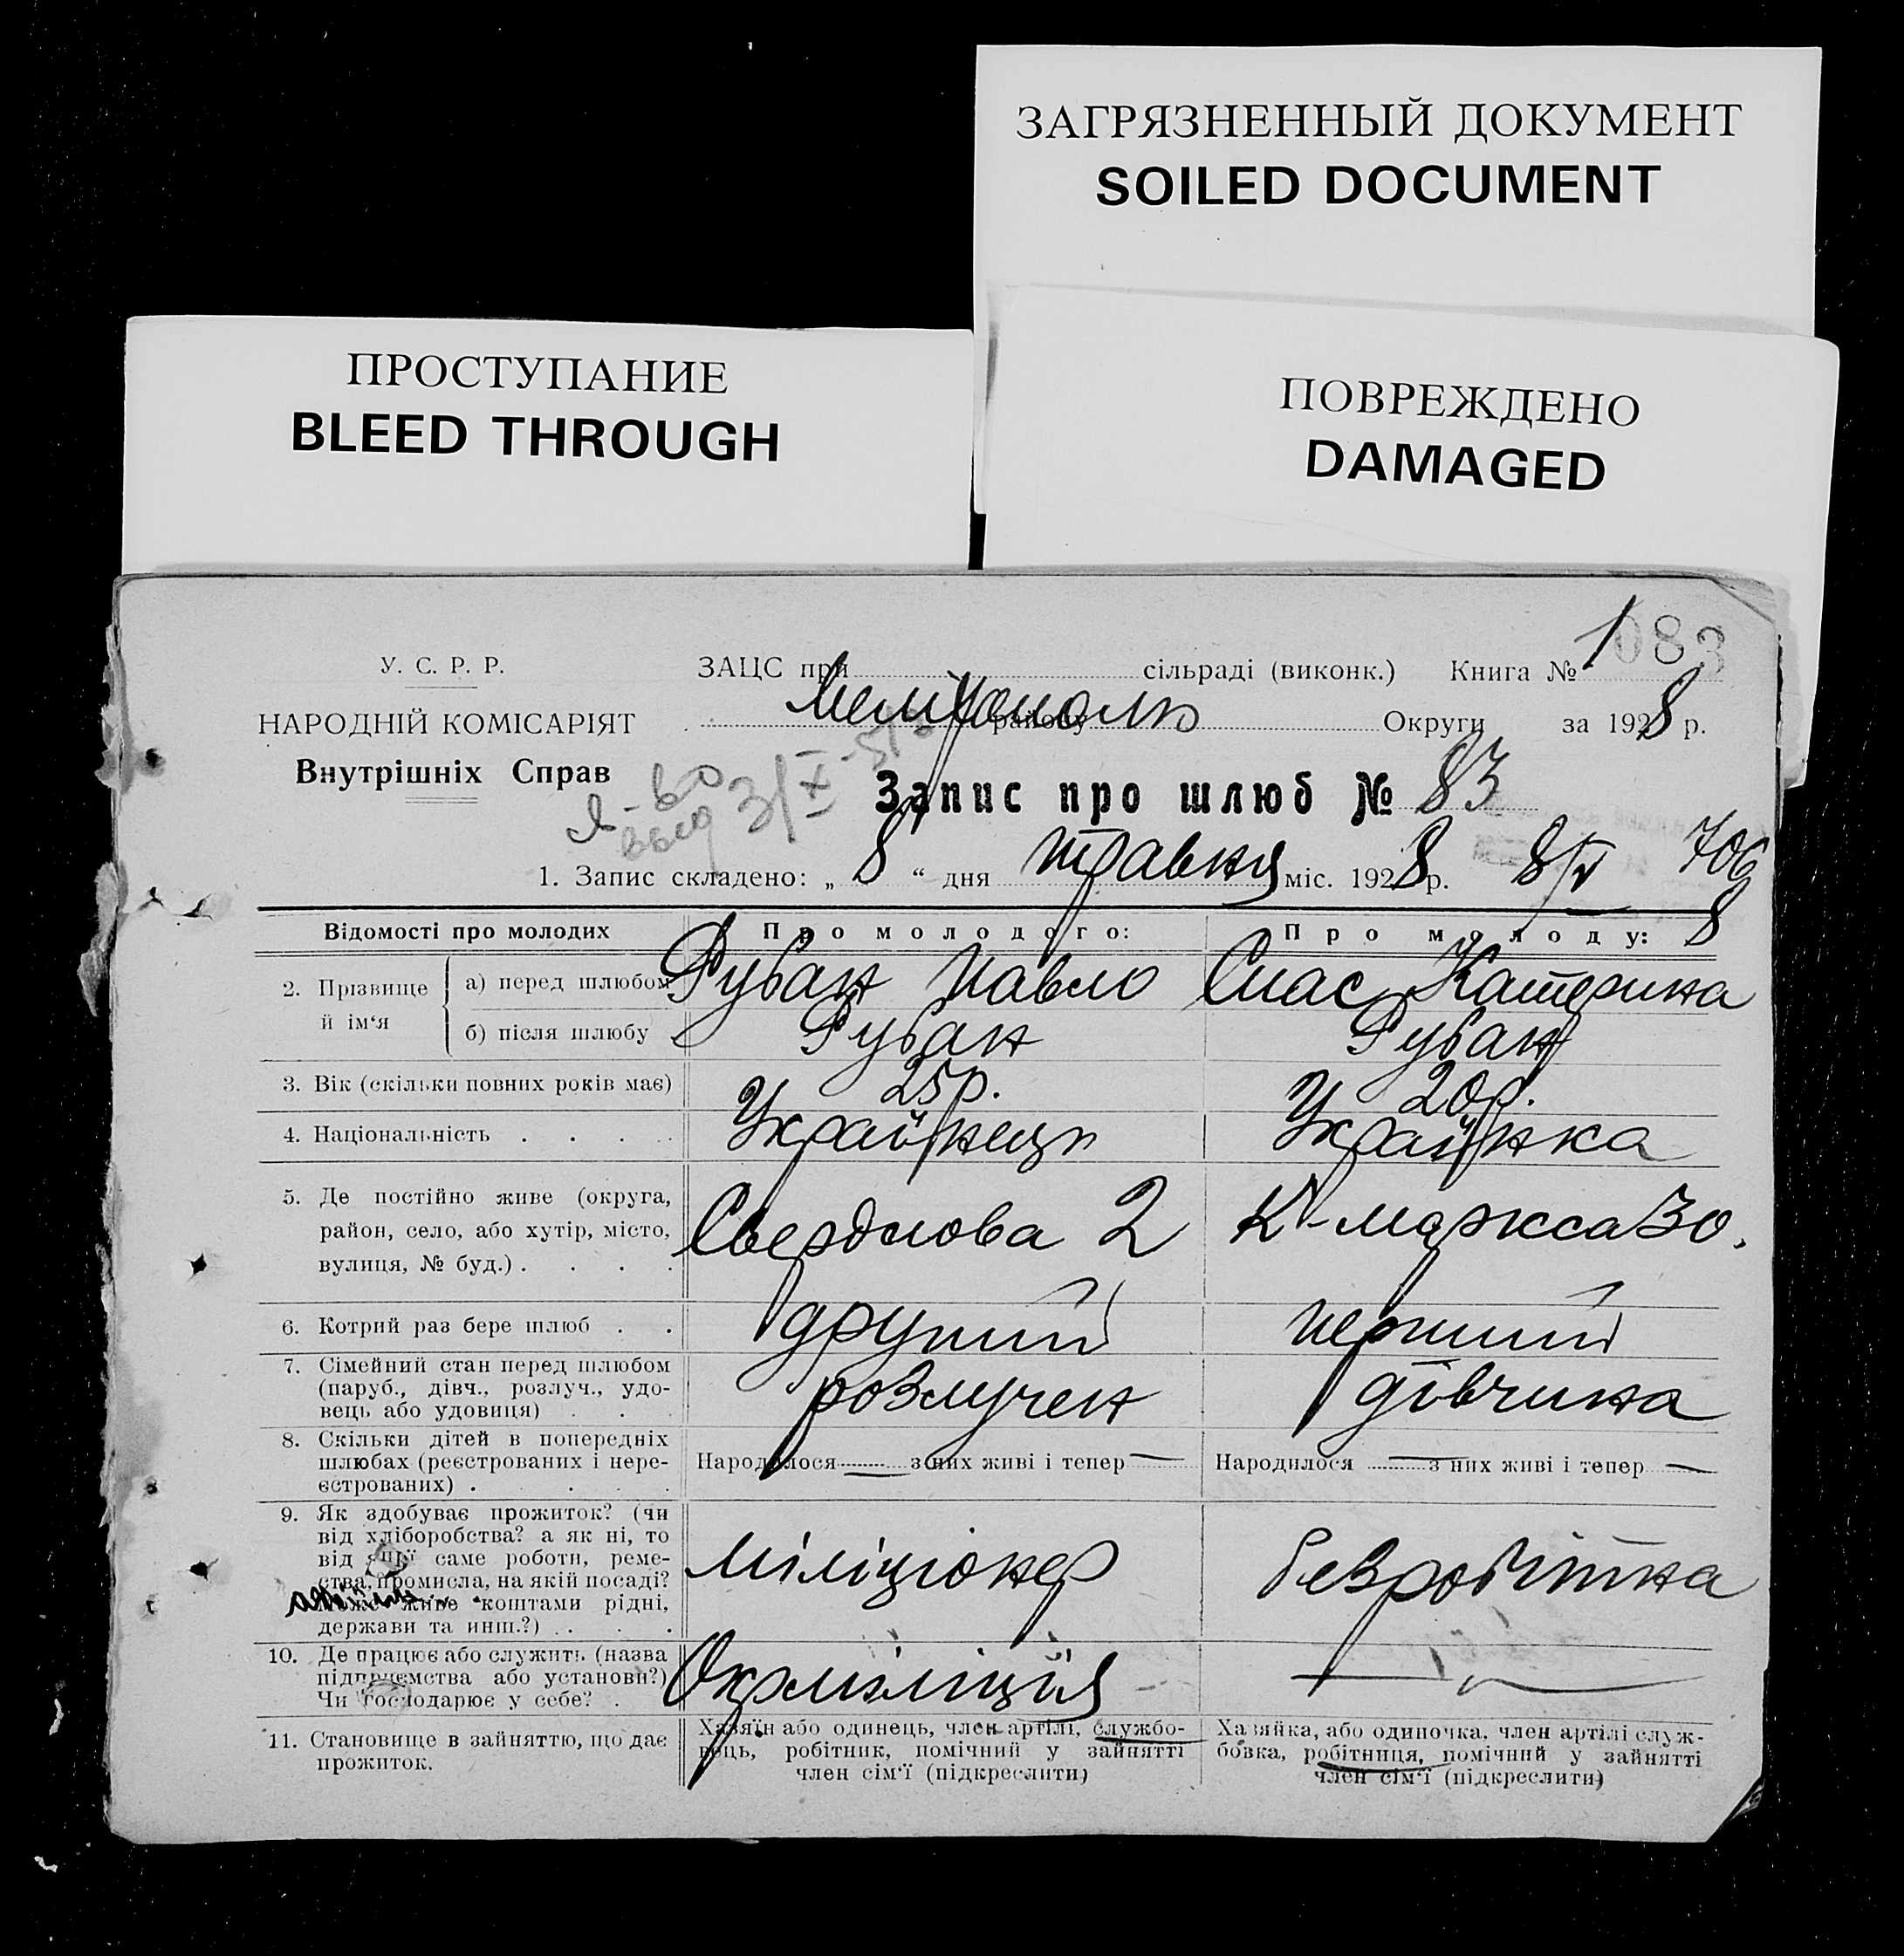 ЗАГРЯЗНЕННЫЙ ДОКУМЕНТ
SOILED DOCUMENT
ПРОСТУПАНИЕ
BLEED THROUGH
ПОВРЕЖДЕНО
DAMAGED
083
У. С. Р. Р.
НАРОДНІЙ КОМІСАРІЯТ
Внутрішніх Справ
ЗАЦС при сільраді (виконк.) Книга № 1
Мелітополь району Округи за 1928 р.
Запис про шлюб № 83
1. Запис складено: „ 8 “ дня травня міс. 1928 р. 8/V 706
8
Відомості про молодих
Про молодого:
Про молоду:
2. Прізвище й ім‘я
а) перед шлюбом Рубан Павло Спас Катерина
б) після шлюбу Рубан Рубан
3. Вік (скільки повних років має) 25р. 20р.
4. Національність . . . . Українець Українка
5. Де постійно живе (округа,
район, село, або хутір, місто,
вулиця, № буд.) . . . .
Свердлова 2 К-Маркса 30.
6. Котрий раз бере шлюб . . другий перший
7. Сімейний стан перед шлюбом
(паруб., дівч., розлуч., удо-
вець або удовиця) . . .
розлучен дівчина
8. Скільки дітей в попередніх
шлюбах (реєстрованих і нере-
єстрованих) . . . . .
Народилося — з них живі і тепер —
Народилося — з них живі і тепер —
9. Як здобуває прожиток? (чи
від хліборобства? а як ні, то
від якої саме роботи, реме-
ства, промисла, на якій посаді?
Може живе коштами рідні,
держави та инш.?) . . .
Міліціонер Безробітна
10. Де працює або служить (назва
підприємства або установи?)
Чи господарює у себе? .
Окрміліція —
11. Становище в зайняттю, що дає
прожиток.
Хазяїн або одинець, член артілі, службо-
вець, робітник, помічний у зайнятті
член сім‘ї (підкреслити)
Хазяйка, або одиночка, член артілі служ-
бовка, робітниця, помічний у зайнятті
член сім‘ї (підкреслити)